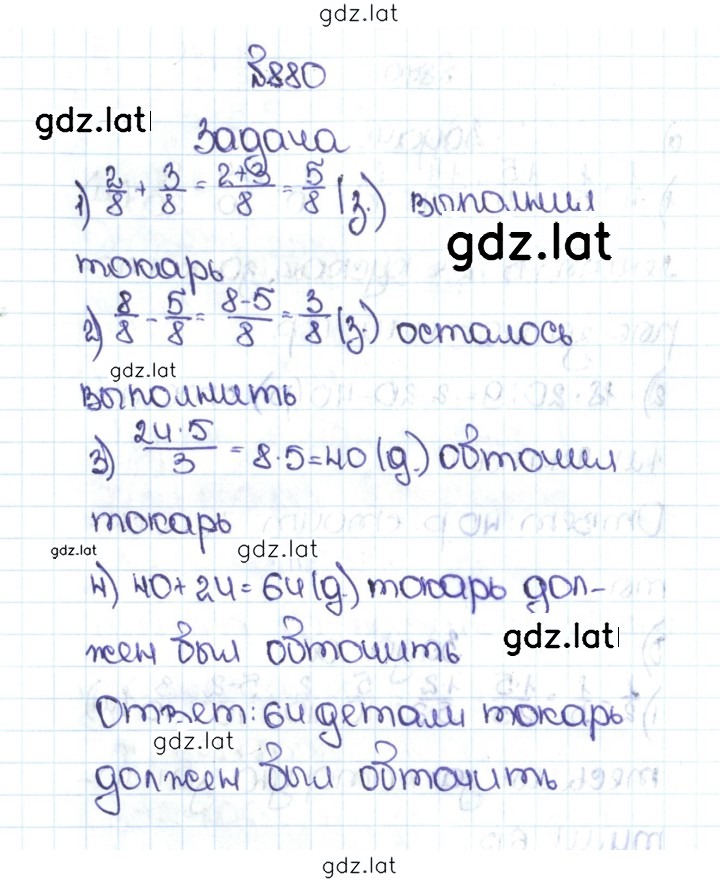 gdz.lat
№880
gdz.lat
Задача
1) 2/8 + 3/8 = 2+3/8 = 5/8 (з.) выполнил
gdz.lat
токарь
2) 8/8 - 5/8 = 8-5/8 = 3/8 (з.) осталось
gdz.lat
выполнить
3) 24·5/3 = 8·5=40 (д.) обточил
токарь
gdz.lat gdz.lat
4) 40+24=64(д.) токарь дол-
жен был обточить
gdz.lat
Ответ: 64 детали токарь
gdz.lat
должен был обточить
gdz.lat